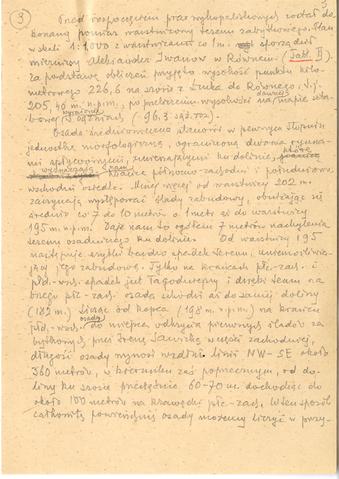 3
Przed rozpoczęciem prac wykopaliskowych został do-
konany pomiar warstwicowy terenu zabytkowego. Plan
w skali 1:1000 z warstwicami co 1m. sporządził
mierniczy Aleksander Iwanow w Równem. (Tabl. II).
Za podstawę obliczeń przyjęto wysokość punktu kilo-
metrowego 226,6 na szosie z Łucka do Równego, t.j.
205,46 m. n.p.m., po przeliczeniu wysokości na mapie szta-
bowej dawnej wyrażonej w sążniach (96.3 sąż. ros).
Osada średniowieczna stanowi w pewnym stopniu
jednostkę morfologiczną, ograniczoną dwoma rynna-
mi spływowymi, zmierzającymi ku dolinie, które
wyodrębniają krańce północno-zachodni i południowo-
wschodni osiedla. Mniej więcej od warstwicy 202 m.
zaczynają występować ślady zabudowy, obniżając się
średnio co 7 do 10 metrów o 1 metr aż do warstwicy
195 m. n.p.m. Daje nam to ogółem 7 metrów nachylenia
terenu osadniczego ku dolinie. Od warstwicy 195
następuje szybki bardzo spadek terenu, uniemożliwia-
jący jego zabudowę. Tylko na krańcach płc.-zach. i
płd.-wsch. spadek jest łagodniejszy i dzięki temu na
brzegu płc.-zach. osada schodzi aż do samej doliny
(182 m.) Licząc od kopca (198 m. n.p.m.) na krańcu
płd.-wsch. osady do miejsca odkrycia pierwszych śladów za-
bytkowych przez Irenę Sawicką w części zachodniej,
długość osady wynosi wzdłuż linii NW-SE około
360 metrów, w kierunku zaś poprzecznym, od do-
liny ku szosie przeciętnie 60-70 m. dochodząc do
około 100 metrów na krawędzi płc-zach. W ten sposób
całkowitą powierzchnię osady możemy liczyć w przy-